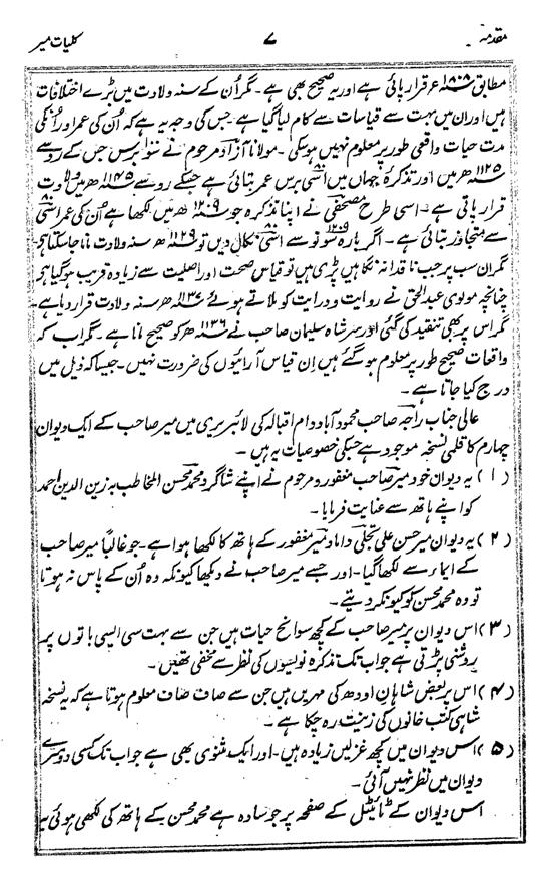 مقدمہ ۷ کلیات میر
مطابق ۱۸۰۸ء قرار پائی ہے اور یہ صحیح بھی ہے ۔ مگر اُن کے سنہ ولادت میں بڑے اختلافات
ہیں اور ان میں بہت سے قیاسات سے کام لیا گیا ہے ۔ جس کی وجہ یہ ہے کہ اُن کی عمر اور اُنکی
مدت حیات واقعی طور پر معلوم نہیں ہوسکی ۔ مولانا آزاد مرحوم نے سنو برس جس کے رو سے
۱۱۲۵ھ میں اور تذکرۂ جہاں میں اسّی ۸۰ برس عمر بتائی ہے جسکے رو سے ۱۱۴۵ھ میں ولادت
قرار پاتی ہے ۔ اسی طرح مصحفی نے اپنا تذکرہ جو ۱۲۰۹ھ میں لکھا ہے اُن کی عمر اسّی ۸۰
سے متجاوز بتائی ہے ۔ اگر بارہ سو نو ۱۲۰۹ سے اسّی ۸۰ نکال دیں تو ۱۱۲۹ھ سنہ ولادت مانا جاسکتا ہے
مگر ان سب پر جب ناقدانہ نگاہیں پڑی ہیں تو قیاس صحت اور اصلیت سے زیادہ قریب ہوگیا ہے
چنانچہ مولوی عبدالحق نے روایت و درایت کو ملاتے ہوئے ۱۱۳۷ھ سنہ ولادت قرار دیا ہے ۔
مگر اس پر بھی تنقید کی گئی اور سر شاہ سلیمان صاحب نے ۱۱۳۶ھ کو صحیح مانا ہے ۔ مگر اب کہ
واقعات صحیح طور پر معلوم ہوگئے ہیں اِن قیاس آرائیوں کی ضرورت نہیں ۔ جیسا کہ ذیل میں
درج کیا جاتا ہے ۔
عالی جناب راجہ صاحب محمودآباد دام اقبالہ کی لائبریری میں میر صاحب کے ایک دیوان
چہارم کا قلمی نسخہ موجود ہے جسکی خصوصیات یہ ہیں ۔
(۱) یہ دیوان خود میر صاحب مغفور و مرحوم نے اپنے شاگرد محمد محسن المخاطب بہ زین الدین احمد
کو اپنے ہاتھ سے عنایت فرمایا ۔
(۲) یہ دیوان میر حسن علی تجلی داماد میر مغفور کے ہاتھ کا لکھا ہوا ہے ۔ جو غالباً میر صاحب
کے ایماء سے لکھا گیا ۔ اور جسے میر صاحب نے دیکھا کیونکہ وہ اُن کے پاس نہ ہوتا
تو وہ محمد محسن کو کیونکر دیتے ۔
(۳) اس دیوان پر میر صاحب کے کچھ سوانح حیات ہیں جن سے بہت سی ایسی باتوں پر
روشنی پڑتی ہے جو اب تک تذکرہ نویسوں کی نظر سے مخفی تھیں ۔
(۴) اس پر بعض شاہانِ اودھ کی مہریں ہیں جن سے صاف صاف معلوم ہوتا ہے کہ یہ نسخہ
شاہی کتب خانوں کی زینت رہ چکا ہے ۔
(۵) اس دیوان میں کچھ غزلیں زیادہ ہیں ۔ اور ایک مثنوی بھی ہے جو اب تک کسی دوسرے
دیوان میں نظر نہیں آئی ۔
اس دیوان کے ٹائیٹل کے صفحہ پر جو سادہ ہے محمد محسن کے ہاتھ کی لکھی ہوئی یہ